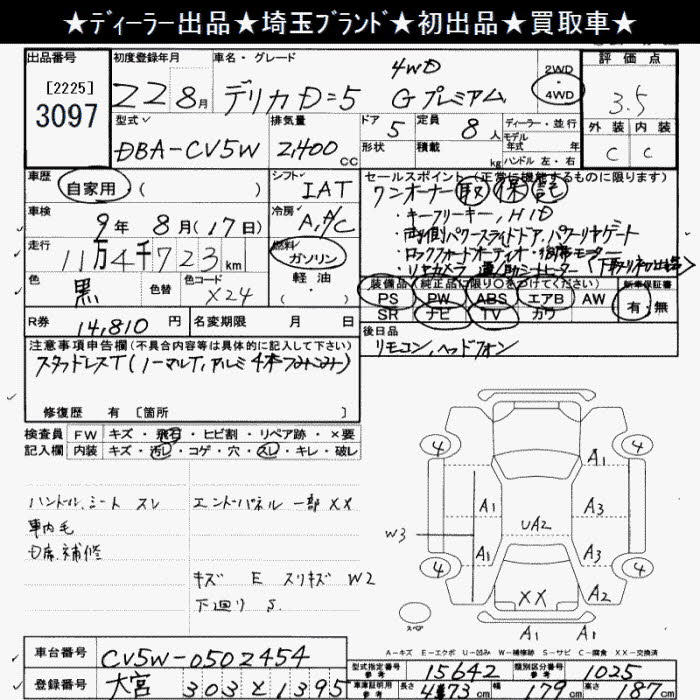 ★ディーラー出品★埼玉ブランド★初出品★買取車★
出品番号 [2225] 3097
初度登録年月 22 8月
車名・グレード デリカD=5 4WD Gプレミアム
2WD・4WD
評価点 3.5
外装 内装
C C
型式 DBA-CV5W
排気量 2,400 CC
ドア 5
形状
定員 8人
積載 kg
ディーラー・並行
モデル
年式 年
ハンドル 左・右
車歴 自家用 ( )
シフト IAT
車検 9年 8月(17日)
冷房 A,A/C
走行 11万4千723km
燃料 ガソリン
軽油
( )
色 黒 色替 色コード X24
R券 14,810円
名変期限 月 日
セールスポイント(正常に機能するものに限ります)
ワンオーナー 取 保 記
・キーフリーキー, HID
・両側パワースライドドア, パワーリヤゲート
・ロックフォードオーディオ・
・リヤカメラ 運/助シートヒーター
装備品(純正品に限り○をつけてください)
PS PW ABS エアB AW
SR ナビ TV カワ
新車保証書
有・無
後日品 リモコン, ヘッドフォン
注意事項申告欄(不具合内容等は具体的に記入して下さい)
スタッドレスT(ノーマルT, アルミ4本つみこみ)
修復歴 有 [箇所 ]
検査員 FW キズ・飛石・ヒビ割・リペア跡・×要
記入欄 内装 キズ・汚レ・コゲ・穴・スレ・キレ・破レ
ハンドル, シート スレ
車内毛
D席補修
エンドパネル 一部XX
キズ E スリキズ W2
下廻り S
4 4
A1
A1 A3
W3 UA2
A1 A3
4 4
XX A2
スペア
A1 A1
A-キズ E-エクボ U-凹み W-補修跡 S-サビ C-腐食 XX-交換済
車台番号 CV5W-0502454
登録番号 大宮 303 と 1395
型式指定番号 参考 15642
類別区分番号 参考 1025
車庫証明用 参考 長さ 473cm 幅 179cm 高さ 187cm